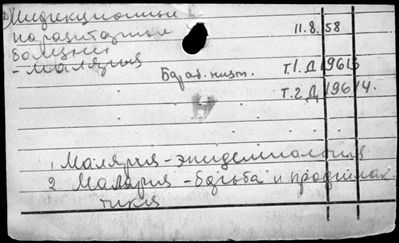 Инфекционные и
паразитарные
болезни
- малярия
11.8.58
Бараб. низм. т.1. Д 1961б
т.2 Д 1961 4.
1. Малярия - эпидемиология
2 Малярия - борьба и профилак
тика